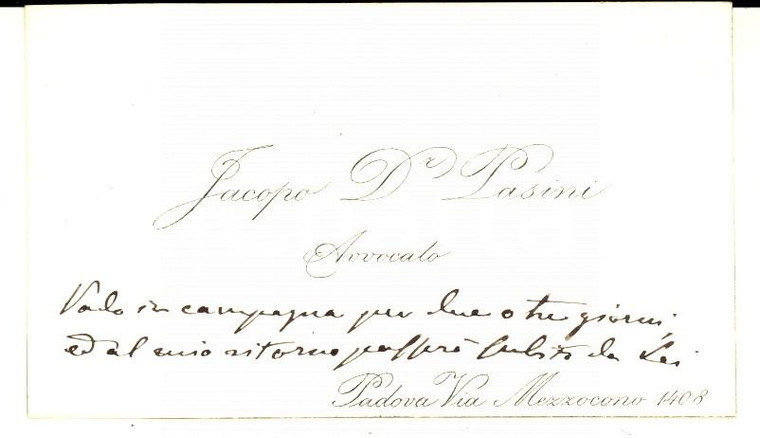 Jacopo Dr Pasini
Avvocato
Vado in campagna per due o tre giorni,
ed al mio ritorno passerò subito da Lei
Padova Via Mezzocono 1408